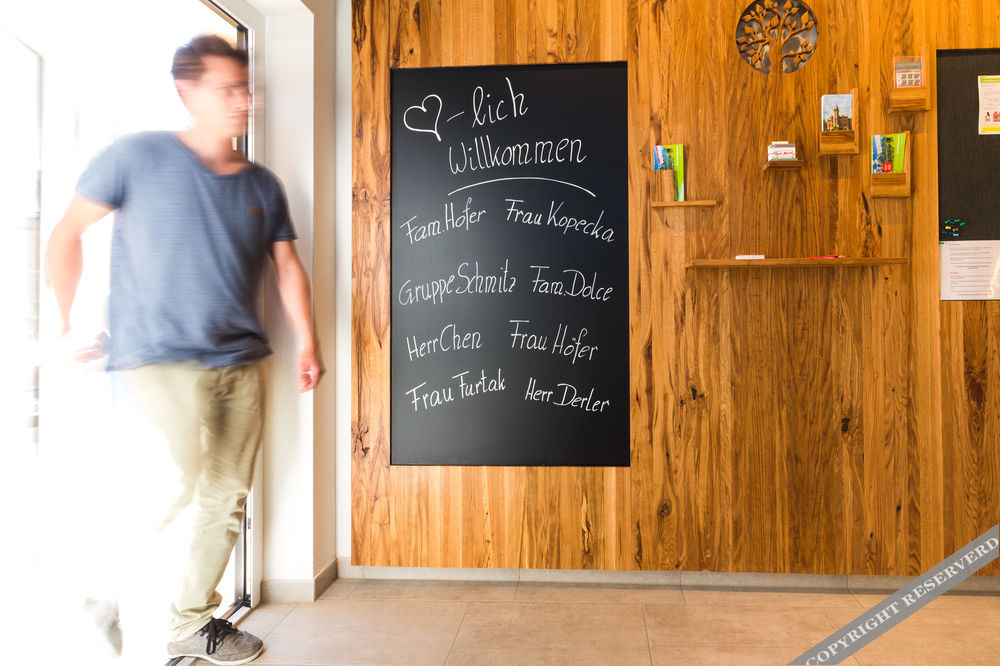 ♡-lich
Willkommen
Fam. Hofer Frau Kopecka
Gruppe Schmitz Fam. Dolce
Herr Chen Frau Höfer
Frau Furtak Herr Derler
COPYRIGHT RESERVERD